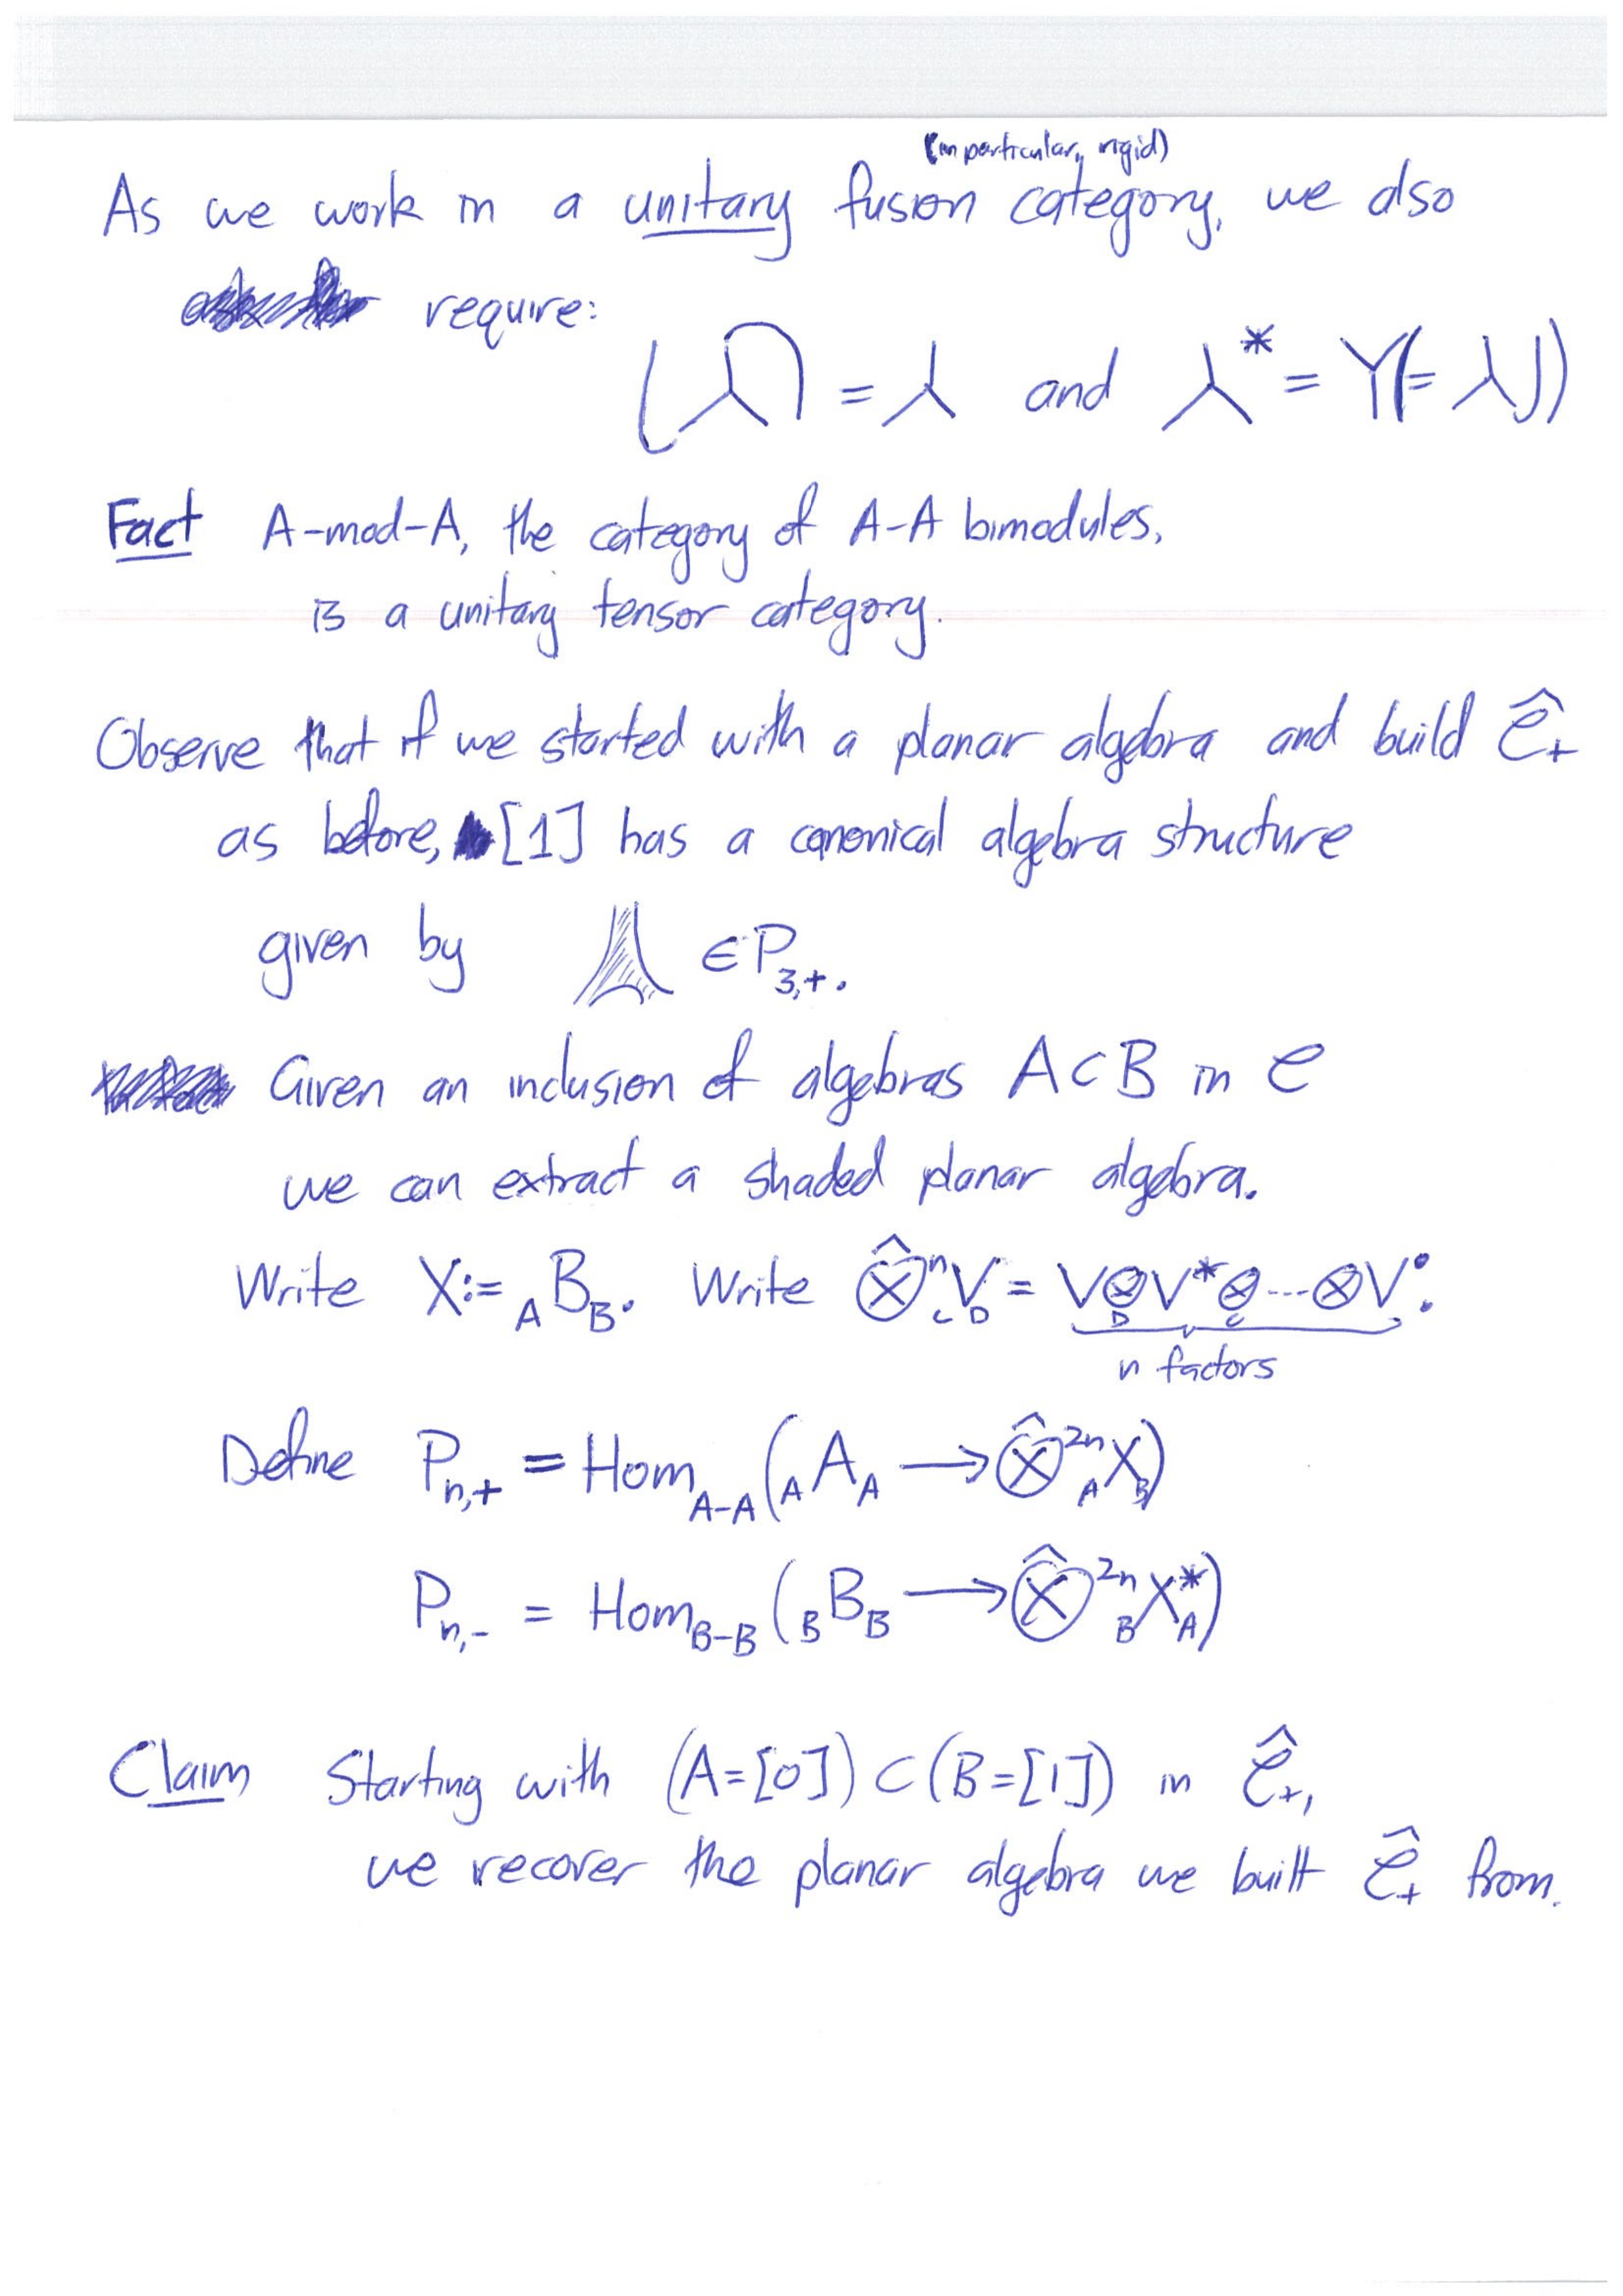 (in particular, rigid)
As we work in a unitary fusion category, we also
require:
= and * = (= )
Fact A-mod-A, the category of A-A bimodules,
is a unitary tensor category.
Observe that if we started with a planar algebra and build Ĉ₊
as before, [1] has a canonical algebra structure
given by ∈ P₃,₊.
Given an inclusion of algebras A ⊂ B in C
we can extract a shaded planar algebra.
Write X := _A B_B. Write ⊗̂ⁿ _C V_D = V ⊗_D V* ⊗_C ... ⊗ V°.
n factors
Define P_{n,+} = Hom_{A-A}(_A A_A → ⊗̂^{2n} _A X_B)
P_{n,-} = Hom_{B-B}(_B B_B → ⊗̂^{2n} _B X*_A)
Claim Starting with (A=[0]) ⊂ (B=[1]) in Ĉ₊,
we recover the planar algebra we built Ĉ₊ from.